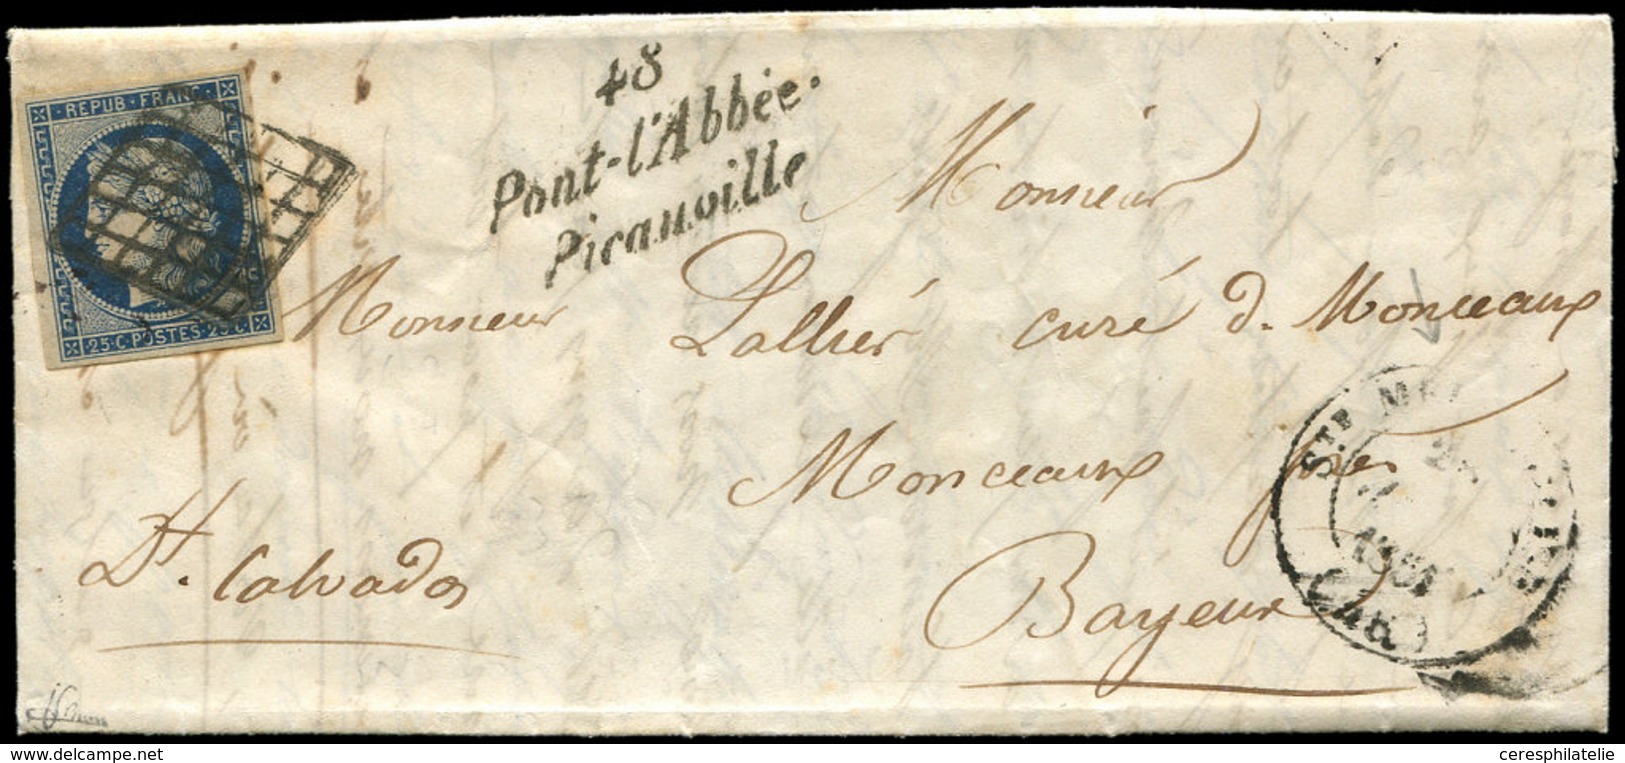 REPUB·FRANC·
25·C·POSTES·25·C·
48
Pont-l'Abbée·
Picauville
Monsieur
Monsieur Lallier curé d. Monceaux
Monceaux près
Bayeux
Dt. Calvados
STE MÈRE EGLISE
1851
(48)
www.delcampe.net
ceresphilatelie